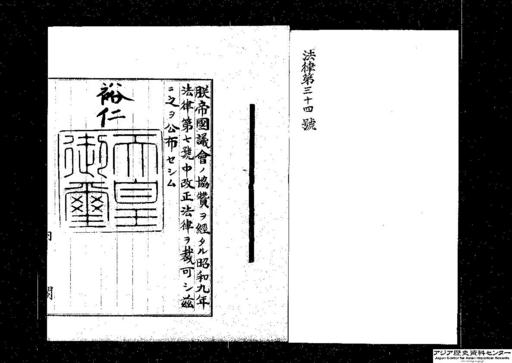 法律第三十四號
朕帝國議會ノ協贊ヲ經タル昭和九年
法律第七號中改正法律ヲ裁可シ茲
ニ之ヲ公布セシム
裕仁
天皇
御璽
内閣
アジア歴史資料センター
Japan Center for Asian Historical Records